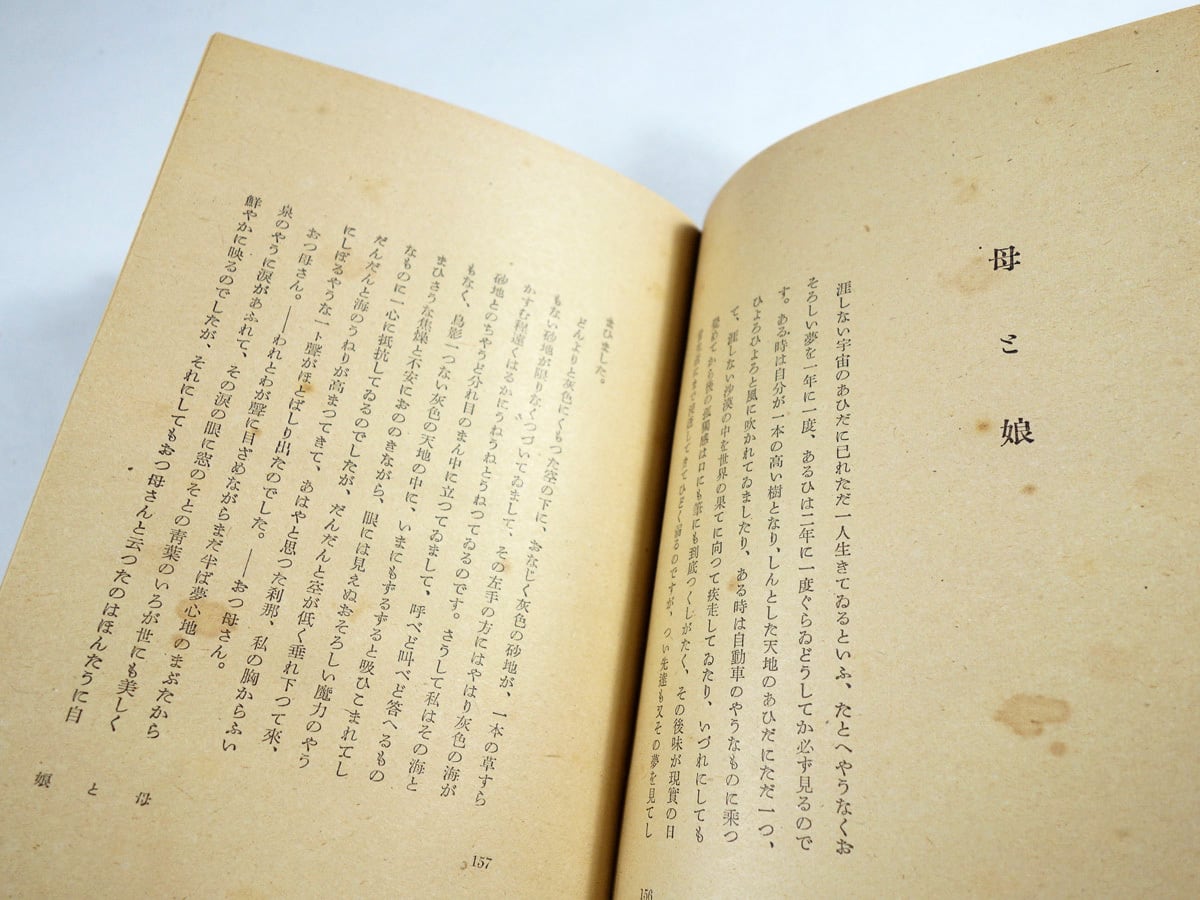 母と娘
涯しない宇宙のあひだに已れただ一人生きてゐるといふ、たとへやうなくお
そろしい夢を一年に一度、あるひは二年に一度ぐらゐどうしてか必ず見るので
す。ある時は自分が一本の高い樹となり、しんとした天地のあひだにただ一つ、
ひよろひよろと風に吹かれてゐましたり、ある時は自動車のやうなものに乗つ
て、涯しない沙漠の中を世界の果てに向つて疾走してゐたり、いづれにしても
覚めてから後の孤獨感は口にも筆にも到底つくしがたく、その後味が現實の日
常生活にまで浸透してきてひどく弱るのですが、つい先達も又その夢を見てし
156
まひました。
どんよりと灰色にくもつた空の下に、おなじく灰色の砂地が、一本の草すら
もない砂地が限りなくつづいてゐまして、その左手の方にはやはり灰色の海が
かすむ程遠くはるかにうねうねとうねつてゐるのです。さうして私はその海と
砂地とのちやうど分れ目のまん中に立つてゐまして、呼べど叫べど答へるもの
もなく、鳥影一つない灰色の天地の中に、いまにもずるずると吸ひこまれてし
まひさうな焦燥と不安におののきながら、眼には見えぬおそろしい魔力のやう
なものに一心に抵抗してゐるのでしたが、だんだんと空が低く垂れ下つて來、
だんだんと海のうねりが高まつてきて、あはやと思つた刹那、私の胸からふい
にしぼるやうな一ト聲がほとばしり出たのでした。――おつ母さん。
おつ母さん。――われとわが聲に目ざめながらまだ半ば夢心地のまぶたから
泉のやうに涙があふれて、その涙の眼に窓のそとの青葉のいろが世にも美しく
鮮やかに映るのでしたが、それにしてもおつ母さんと云つたのはほんたうに自
母と娘
157